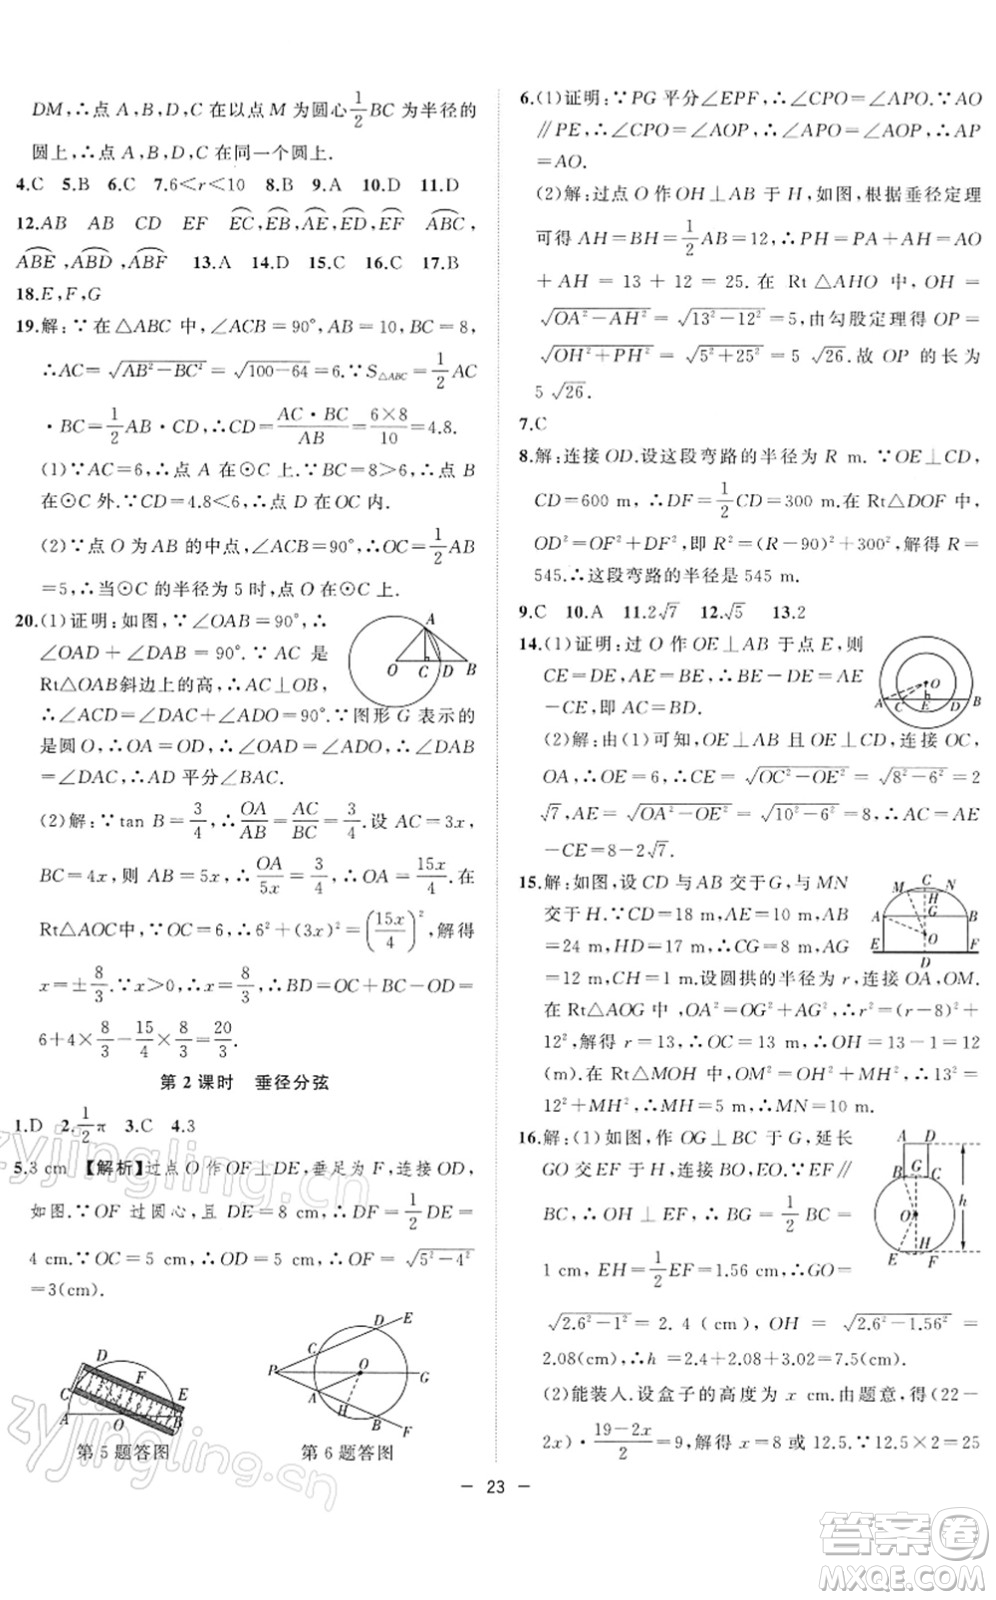 DM,∴点 A,B,D,C 在以点 M 为圆心 1/2 BC 为半径的
圆上,∴点 A,B,D,C 在同一个圆上.
4.C 5.B 6.C 7.6<r<10 8.B 9.A 10.D 11.D
12.AB AB CD EF E͡C,E͡B,A͡E,E͡D,E͡F A͡BC,
A͡BE,A͡BD,A͡BF 13.A 14.D 15.C 16.C 17.B
18.E,F,G
19.解:∵在△ABC 中,∠ACB=90°,AB=10,BC=8,
∴AC=√(AB²-BC²)=√(100-64)=6.∵S△ABC=1/2 AC
·BC=1/2 AB·CD,∴CD=(AC·BC)/AB=(6×8)/10=4.8.
(1)∵AC=6,∴点 A 在⊙C 上.∵BC=8>6,∴点 B
在⊙C 外.∵CD=4.8<6,∴点 D 在⊙C 内.
(2)∵点 O 为 AB 的中点,∠ACB=90°,∴OC=1/2 AB
=5,∴当⊙C 的半径为 5 时,点 O 在⊙C 上.
20.(1)证明:如图,∵∠OAB=90°,∴
∠OAD+∠DAB=90°.∵AC 是
Rt△OAB斜边上的高,∴AC⊥OB,
∴∠ACD=∠DAC+∠ADO=90°.∵图形 G 表示的
是圆 O,∴OA=OD,∴∠OAD=∠ADO,∴∠DAB
=∠DAC,∴AD 平分∠BAC.
A
O C D B
(2)解:∵tan B=3/4,∴OA/AB=AC/BC=3/4.设 AC=3x,
BC=4x,则 AB=5x,∴OA/5x=3/4,∴OA=15x/4.在
Rt△AOC中,∵OC=6,∴6²+(3x)²=(15x/4)²,解得
x=±8/3.∵x>0,∴x=8/3,∴BD=OC+BC-OD=
6+4×8/3-15/4×8/3=20/3.
第 2 课时 垂径分弦
1.D 2.1/2 π 3.C 4.3
5.3 cm 【解析】过点 O 作 OF⊥DE,垂足为 F,连接 OD,
如图.∵OF 过圆心,且 DE=8 cm,∴DF=1/2 DE=
4 cm.∵OC=5 cm,∴OD=5 cm,∴OF=√(5²-4²)
=3(cm).
D F E C A O B
第 5 题答图
P C D E O G A H B F
第 6 题答图
6.(1)证明:∵PG 平分∠EPF,∴∠CPO=∠APO.∵AO
∥PE,∴∠CPO=∠AOP,∴∠APO=∠AOP,∴AP
=AO.
(2)解:过点 O 作 OH⊥AB 于 H,如图,根据垂径定理
可得 AH=BH=1/2 AB=12,∴PH=PA+AH=AO
+AH=13+12=25.在 Rt△AHO 中,OH=
√(OA²-AH²)=√(13²-12²)=5,由勾股定理得 OP=
√(OH²+PH²)=√(5²+25²)=5√26.故 OP 的长为
5√26.
7.C
8.解:连接 OD.设这段弯路的半径为 R m.∵OE⊥CD,
CD=600 m,∴DF=1/2 CD=300 m.在 Rt△DOF 中,
OD²=OF²+DF²,即 R²=(R-90)²+300²,解得 R=
545.∴这段弯路的半径是 545 m.
9.C 10.A 11.2√7 12.√5 13.2
14.(1)证明:过 O 作 OE⊥AB 于点 E,则
CE=DE,AE=BE,∴BE-DE=AE
-CE,即 AC=BD.
(2)解:由(1)可知,OE⊥AB 且 OE⊥CD,连接 OC,
O
A C E D B
OA,∴OE=6,∴CE=√(OC²-OE²)=√(8²-6²)=2
√7,AE=√(OA²-OE²)=√(10²-6²)=8,∴AC=AE
-CE=8-2√7.
15.解:如图,设 CD 与 AB 交于G,与 MN
交于 H.∵CD=18 m,AE=10 m,AB
=24 m,HD=17 m,∴CG=8 m,AG
=12 m,CH=1 m.设圆拱的半径为 r,连接 OA,OM.
在 Rt△AOG 中,OA²=OG²+AG²,∴r²=(r-8)²+
12²,解得 r=13,∴OC=13 m,∴OH=13-1=12
(m).在 Rt△MOH 中,OM²=OH²+MH²,∴13²=
12²+MH²,∴MH²=25,∴MH=5 m,∴MN=10 m.
M C N H A G B O E D F
16.解:(1)如图,作 OG⊥BC 于 G,延长
GO 交 EF 于 H,连接 BO,EO.∵EF∥
BC,∴OH⊥EF,∴BG=1/2 BC=
1 cm,EH=1/2 EF=1.56 cm,∴GO=
√(2.6²-1²)=2.4(cm),OH=√(2.6²-1.56²)=
2.08(cm),∴h=2.4+2.08+3.02=7.5(cm).
A D B G C O H E F h
(2)能装入.设盒子的高度为 x cm.由题意,得(22-
2x)·(19-2x)/2=9,解得 x=8 或 12.5.∵12.5×2=25
— 23 —
zyjingling.cn
zyjingling.cn
答案圈
MXQE.COM